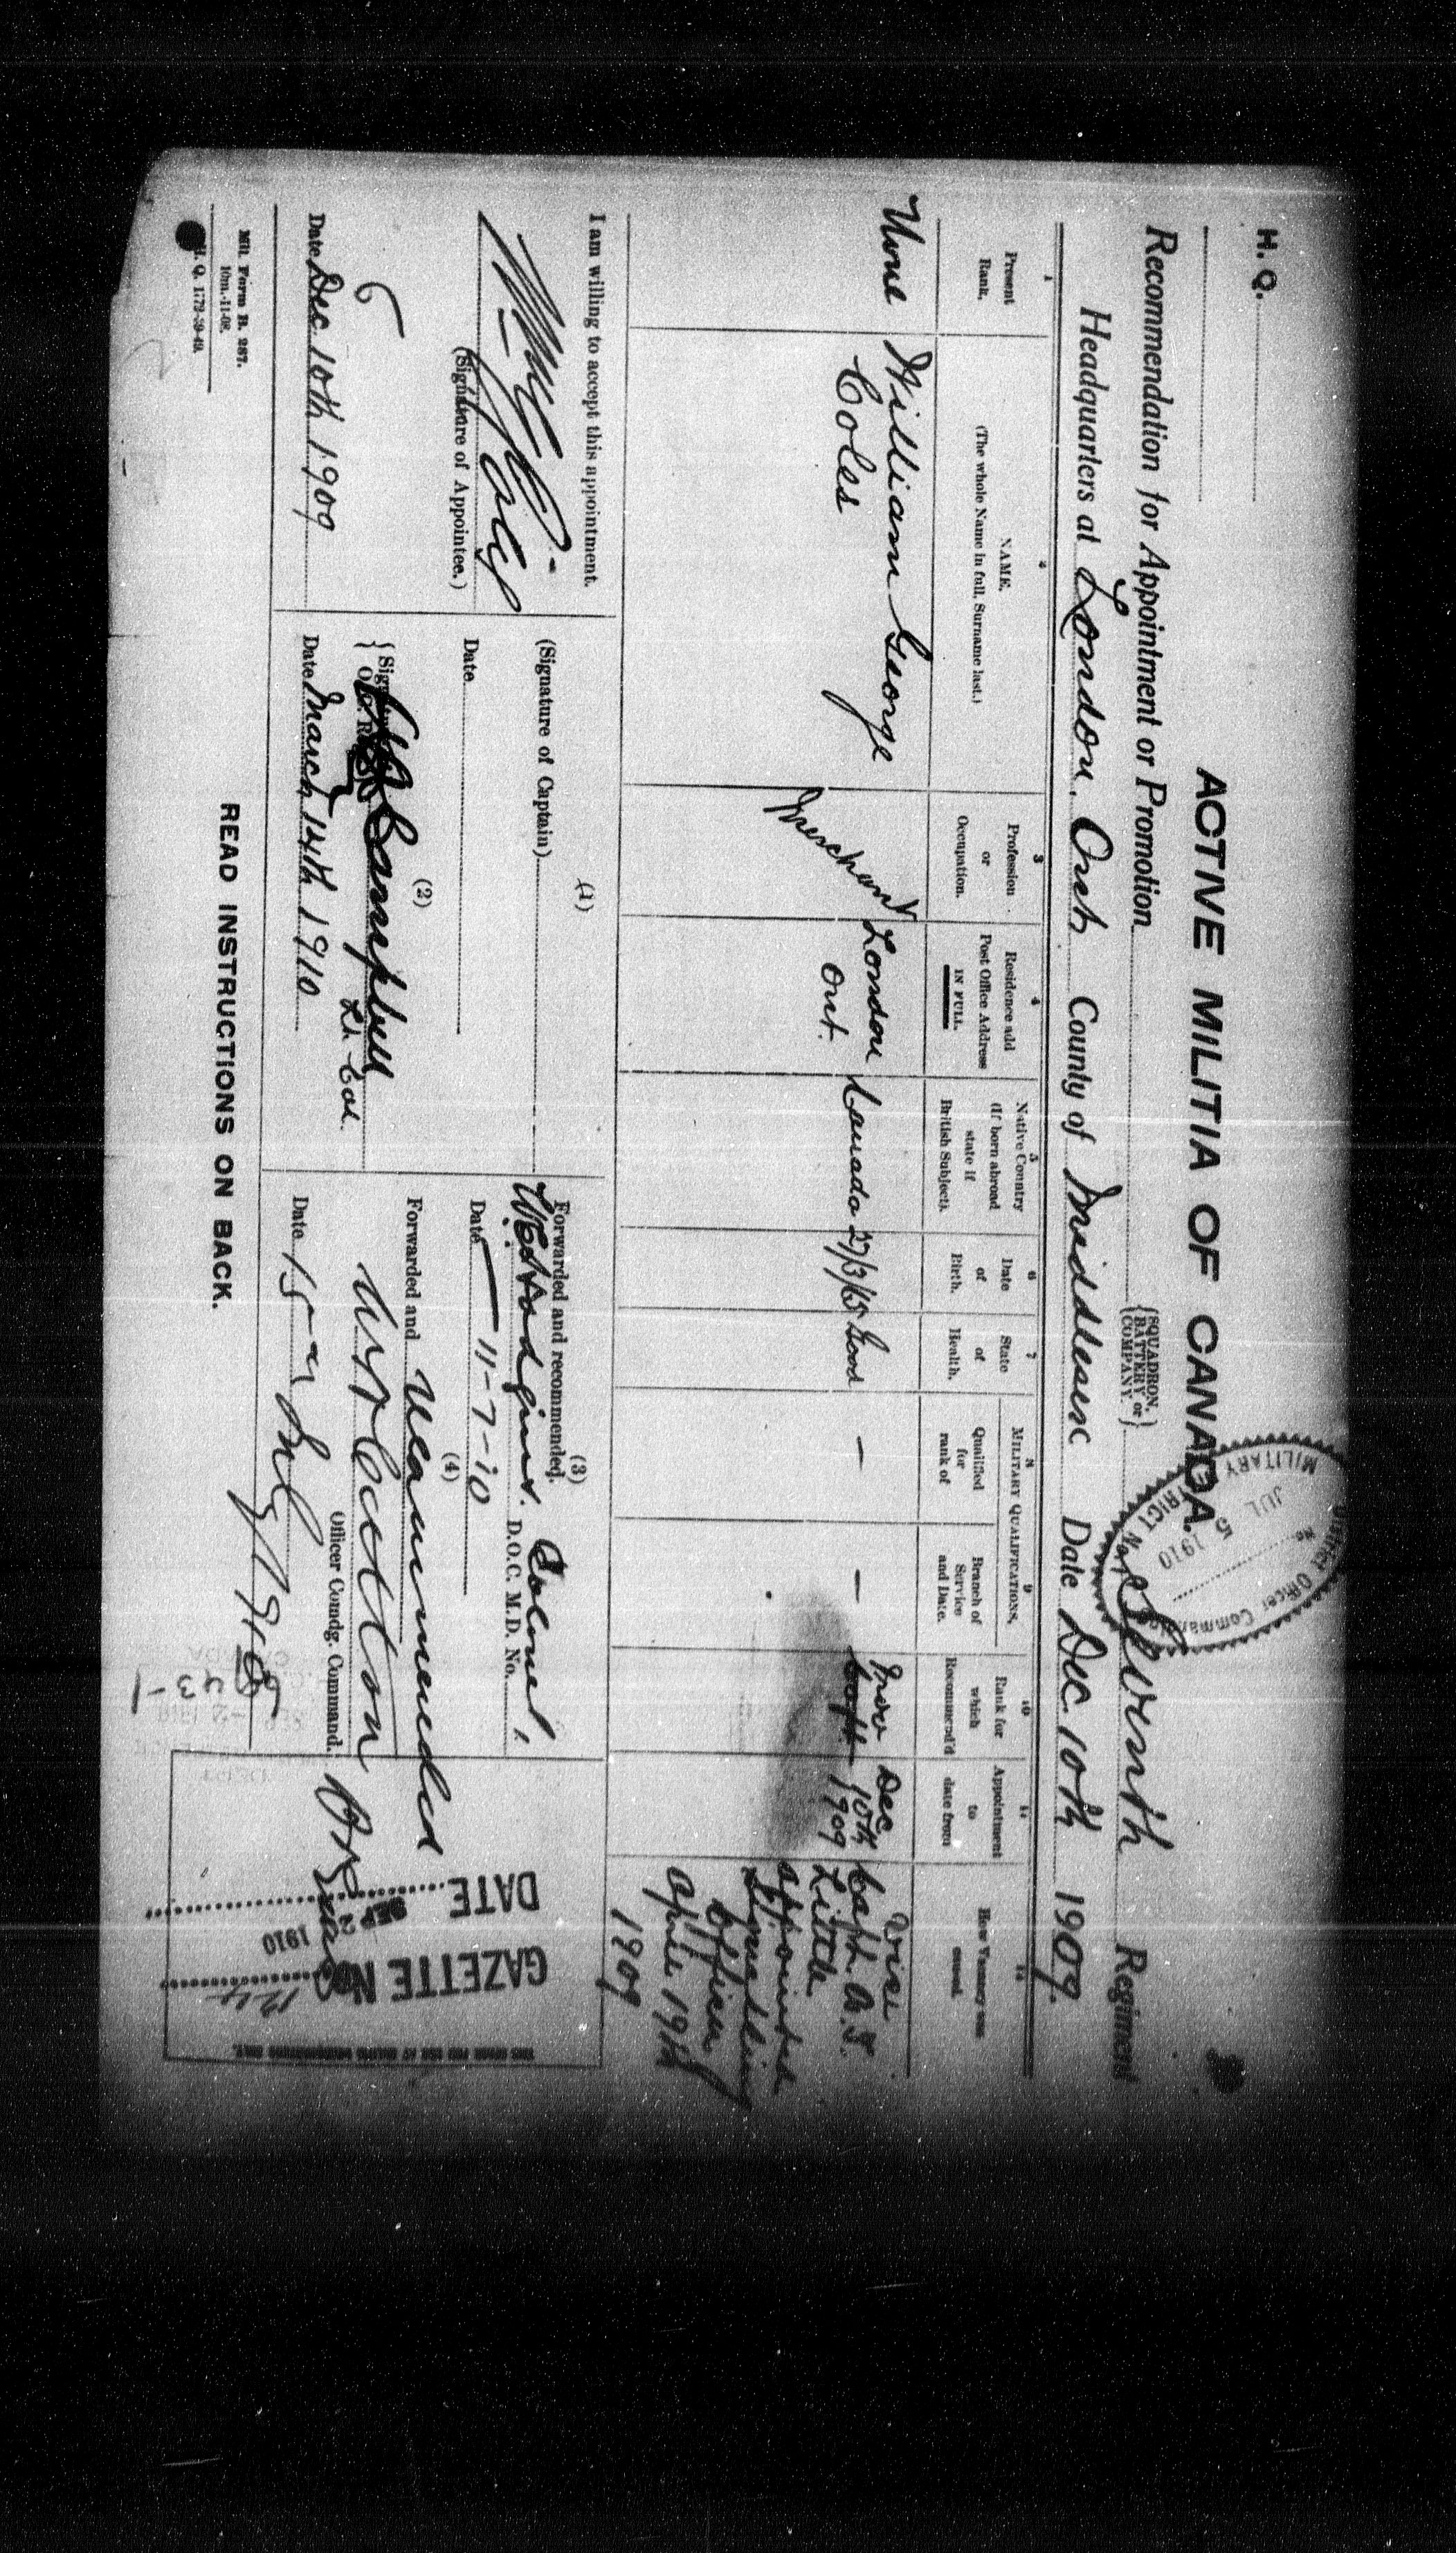 H. Q.
ACTIVE MILITIA OF CANADA.
District Officer Commanding
No.
JUL 5 1910
MILITARY DISTRICT No. 1
Recommendation for Appointment or Promotion {SQUADRON, BATTERY or COMPANY} Seventh Regiment
Headquarters at London. Ont County of Middlesex Date Dec. 10th 1909.
1 Present Rank.
2 NAME. (The whole Name in full, Surname last.)
3 Profession or Occupation.
4 Residence add Post Office Address IN FULL.
5 Native Country (If born abroad state if British Subject).
6 Date of Birth.
7 State of Health.
MILITARY QUALIFICATIONS.
8 Qualified for rank of
9 Branch of Service and Date.
10 Rank for which Recommend'd
11 Appointment to date from
12 How Vacancy was caused.
None
William George
Coles
Merchant
London
Ont.
Canada
27/3/65
Good
—
—
Prov
Capt
Dec
10th
1909
Vice
Capt.
Little
appointed
Signalling
Officer
April 19th
1909
I am willing to accept this appointment.
Coles
(Signature of Appointee.)
6
Date Dec. 10th 1909
(1)
(Signature of Captain)
Date
(2)
Campbell
Lt. Col.
Date March 14th 1910
(3)
Forwarded and recommended.
W. E. Hodgins. Colonel,
D.O.C. M.D. No.
Date 11-7-10
(4)
Forwarded and Recommended
Officer Comdg. Command.
Date 15
DATE SEP 2 1910
GAZETTE No
Mil. Form B. 287.
10m.-11-08.
H. Q. 1772-39-49.
READ INSTRUCTIONS ON BACK.